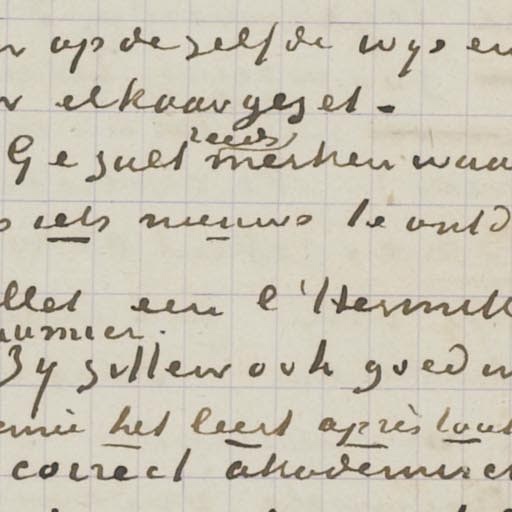 op de zelfde wys en
elkaar gezet -
reeds
Ge zult merken waa
iets nieuws te ontd
llet een l'Hermitt
aumier.
Zy zullen ook goed
het leert après tout
correct akademisch